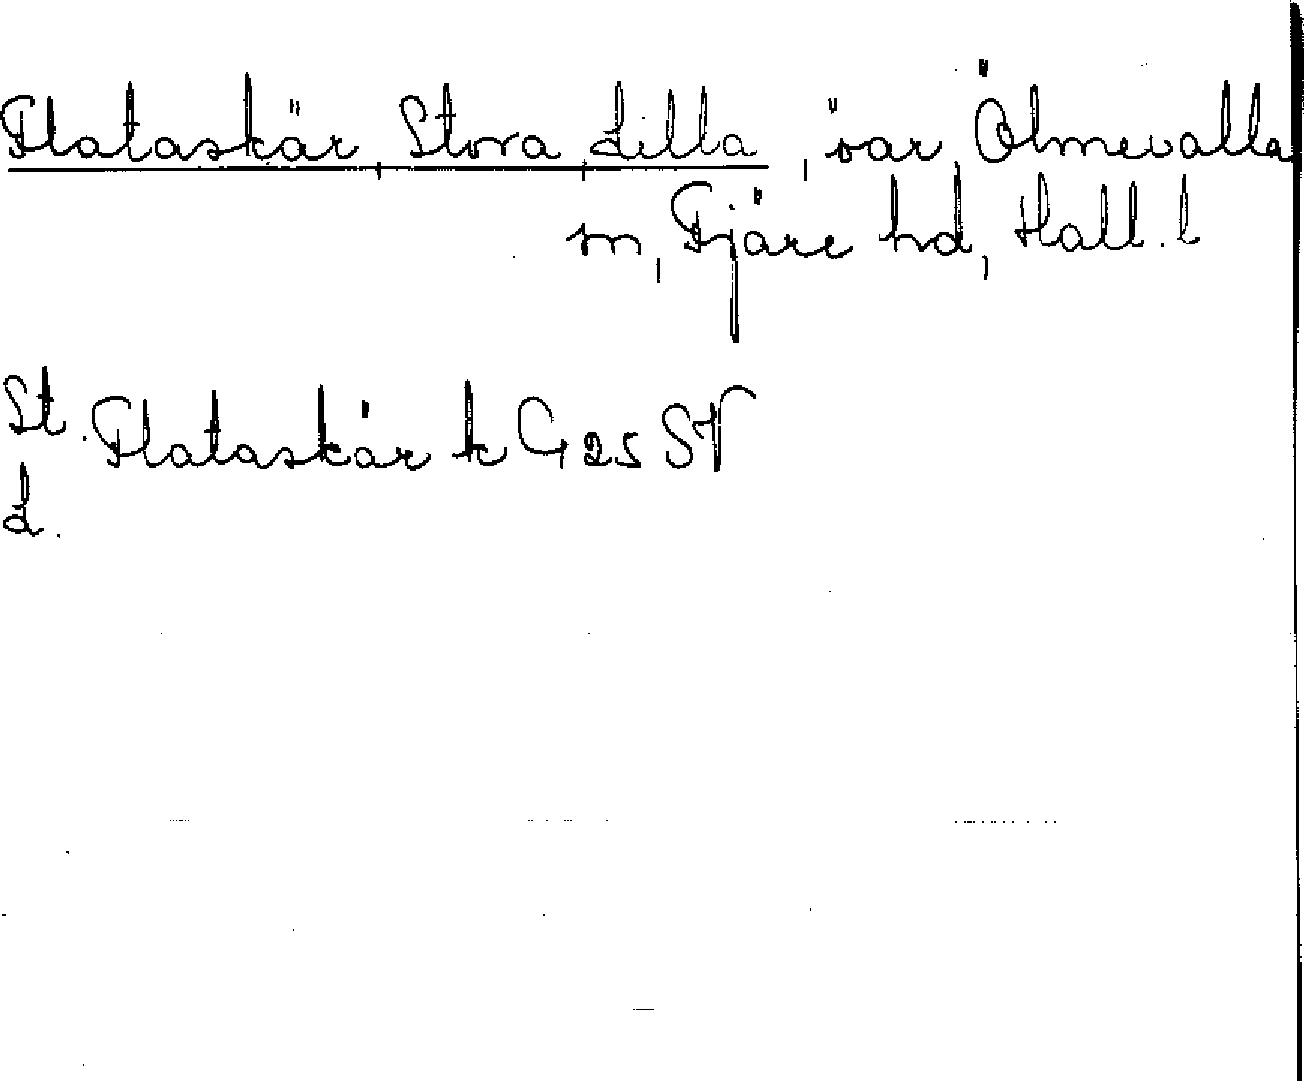 Flataskär, Stora, Lilla, öar, Ölmevalla
sn, Fjäre hd, Hall. l
St. Flataskär k G 25 SV
L.